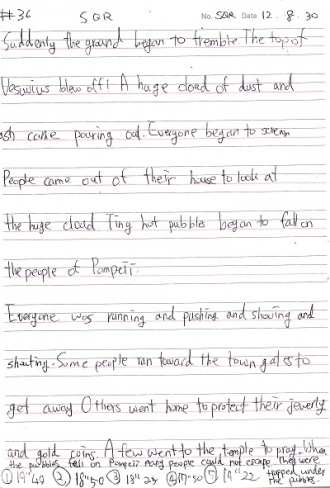 #36 SQR No. SQR Date 12. 8. 30
Suddenly the ground began to tremble The top of
Vesuvius blew off! A huge cloud of dust and
ash came pouring out. Everyone began to scream
People came out of their house to look at
the huge cloud Ting hot pubbles began to fall on
the people of Pompeii.
Everyone was running and pushing and shoving and
shouting. Some people ran toward the town gates to
get away Others went home to protect their jewerly
and gold coins. A few went to the temple to pray. When
the pubbles fell on Pompeii many people could not escape They were
trapped under the pubbles.
① 19"49 ② 18"50 ③ 18" ④ 17"50 ⑤ 19"22